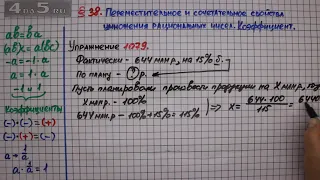 4 DO 5 .RU
§ 38. Переместительное и сочетательное свойства
умножения рациональных чисел. Коэффициент.
ab = ba
(ab)x = a(bc)
-a = -1·a
-a = -1·a
-1 и 1
Коэффициенты
(-)·(-) = (+)
(-)·(+) = (-)
a → 1/a
a · 1/a = 1
Упражнение 1079.
Фактически - 644 млн р, на 15% б.
По плану - ? р.
Пусть планировали произвести продукции на x млн р,
x млн р. - 100%
644 млн р - 100% + 15% = 115%
=> x = 644·100/115 = 6440